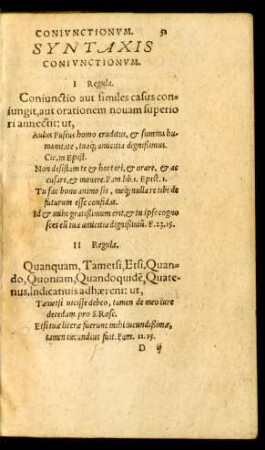 CONIVNCTIONVM. 51
SYNTAXIS
CONIVNCTIONVM.
I Regula.
Coniunctio aut similes casus con-
iungit, aut orationem nouam superio
ri annectit: ut,
Aulus Fusius homo eruditus, & summa hu-
manitate, tuaq; amicitia dignissimus.
Cic. in Epist.
Non desistam te & hortari, & orare, & ac
cusare, & monere. Fam. lib. 1. Epist. 1.
Tu fac bono animo sis, neq; nulla re tibi de
futurum esse confidas.
Id & mihi gratissimum erit, & tu ipse cogno
sces eũ tua amicitia dignissimũ. F. 13. 15.
II Regula.
Quanquam, Tametsi, Etsi, Quan-
do, Quoniam, Quandoquidē, Quate-
nus, Indicatiuis adhærent: ut,
Tametsi uicisse debeo, tamen de meo iure
decedam pro S. Rosc.
Etsi tuæ literæ fuerunt mihi iucundissimæ,
tamen iucundius fuit. Fam. 11. 15.
D ij